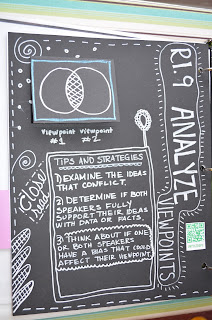 RI.9 ANALYZE
VIEWPOINTS
viewpoint viewpoint
#1 #2
close
read
TIPS AND STRATEGIES
1) EXAMINE THE IDEAS
THAT CONFLICT.
2) DETERMINE IF BOTH
SPEAKERS FULLY
SUPPORT THEIR IDEAS
WITH DATA OR FACTS.
3) THINK ABOUT IF ONE
OR BOTH SPEAKERS
HAVE A BIAS THAT COULD
AFFECT THEIR VIEWPOINT.